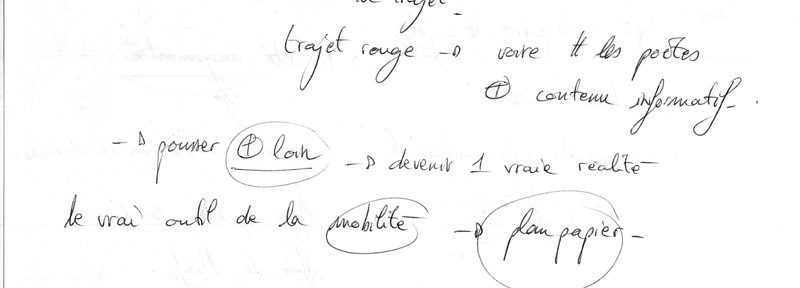 trajet.
trajet rouge → voire # les poètes
⊕ contenu informatif.
→ pousser ⊕ loin → devenir 1 vraie réalité
le vrai outil de la mobilité → plan papier.